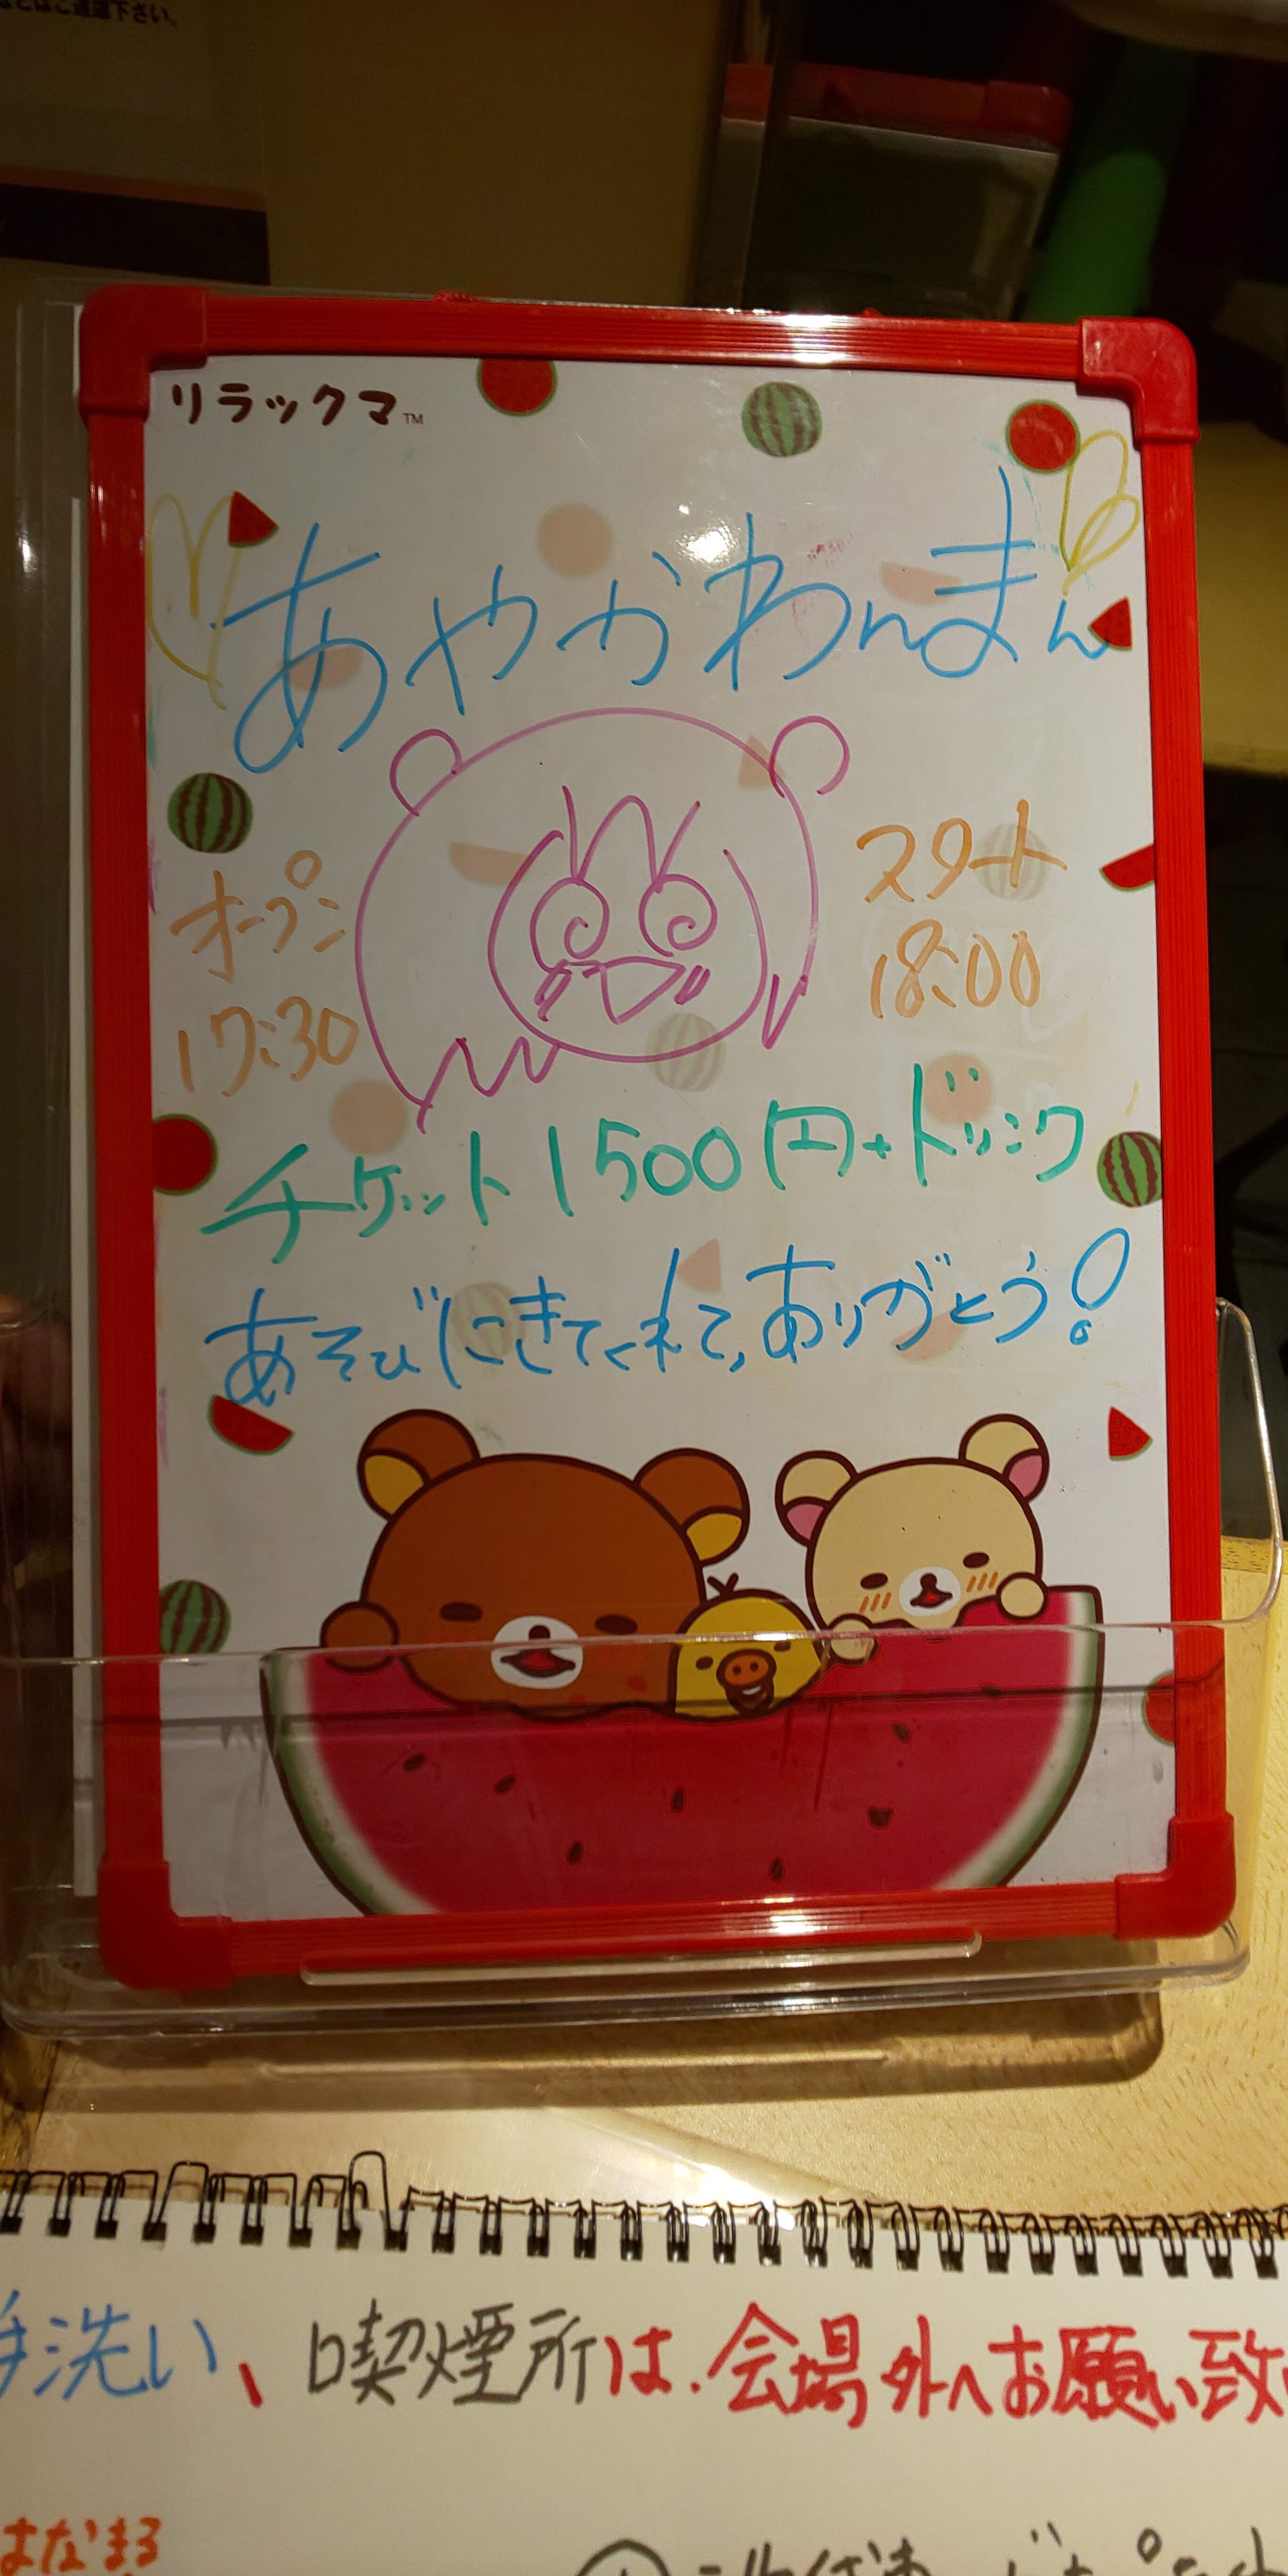 などはご遠慮下さい。
リラックマ™
あやかわんまん
オープン
17:30
スタート
18:00
チケット1500円+ドリンク
あそびにきてくれて、ありがとう!
手洗い、喫煙所は、会場外へお願い致
はなまる